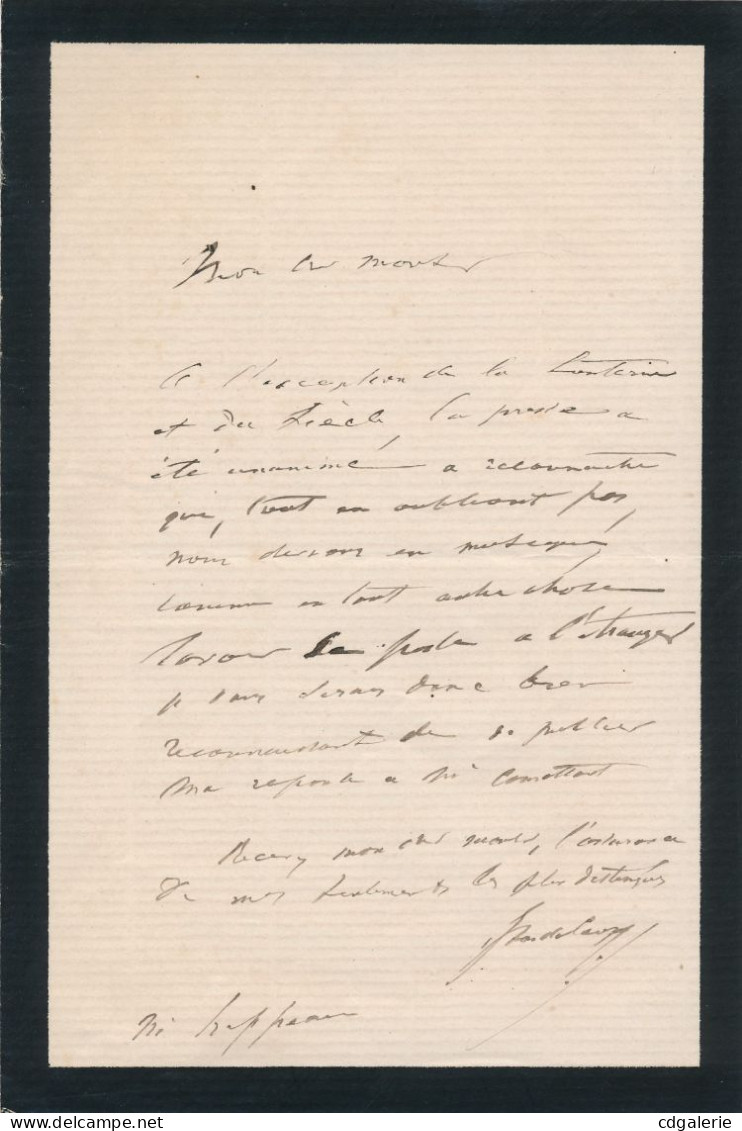 Mon cher monsieur
A l'exception de la Lanterne
et du Siècle, la presse a
été unanime a reconnaitre
que, tout en oubliant pas,
nous devons en musique,
comme en tout autre chose
la porte a l'étranger
je vous serais donc bien
reconnaissant de publier
ma reponse a Mr Comettant
Recevez mon cher monsieur, l'assurance
de mes sentiments les plus distingués
J. Pasdeloup
Mr Heppeau
cdgalerie